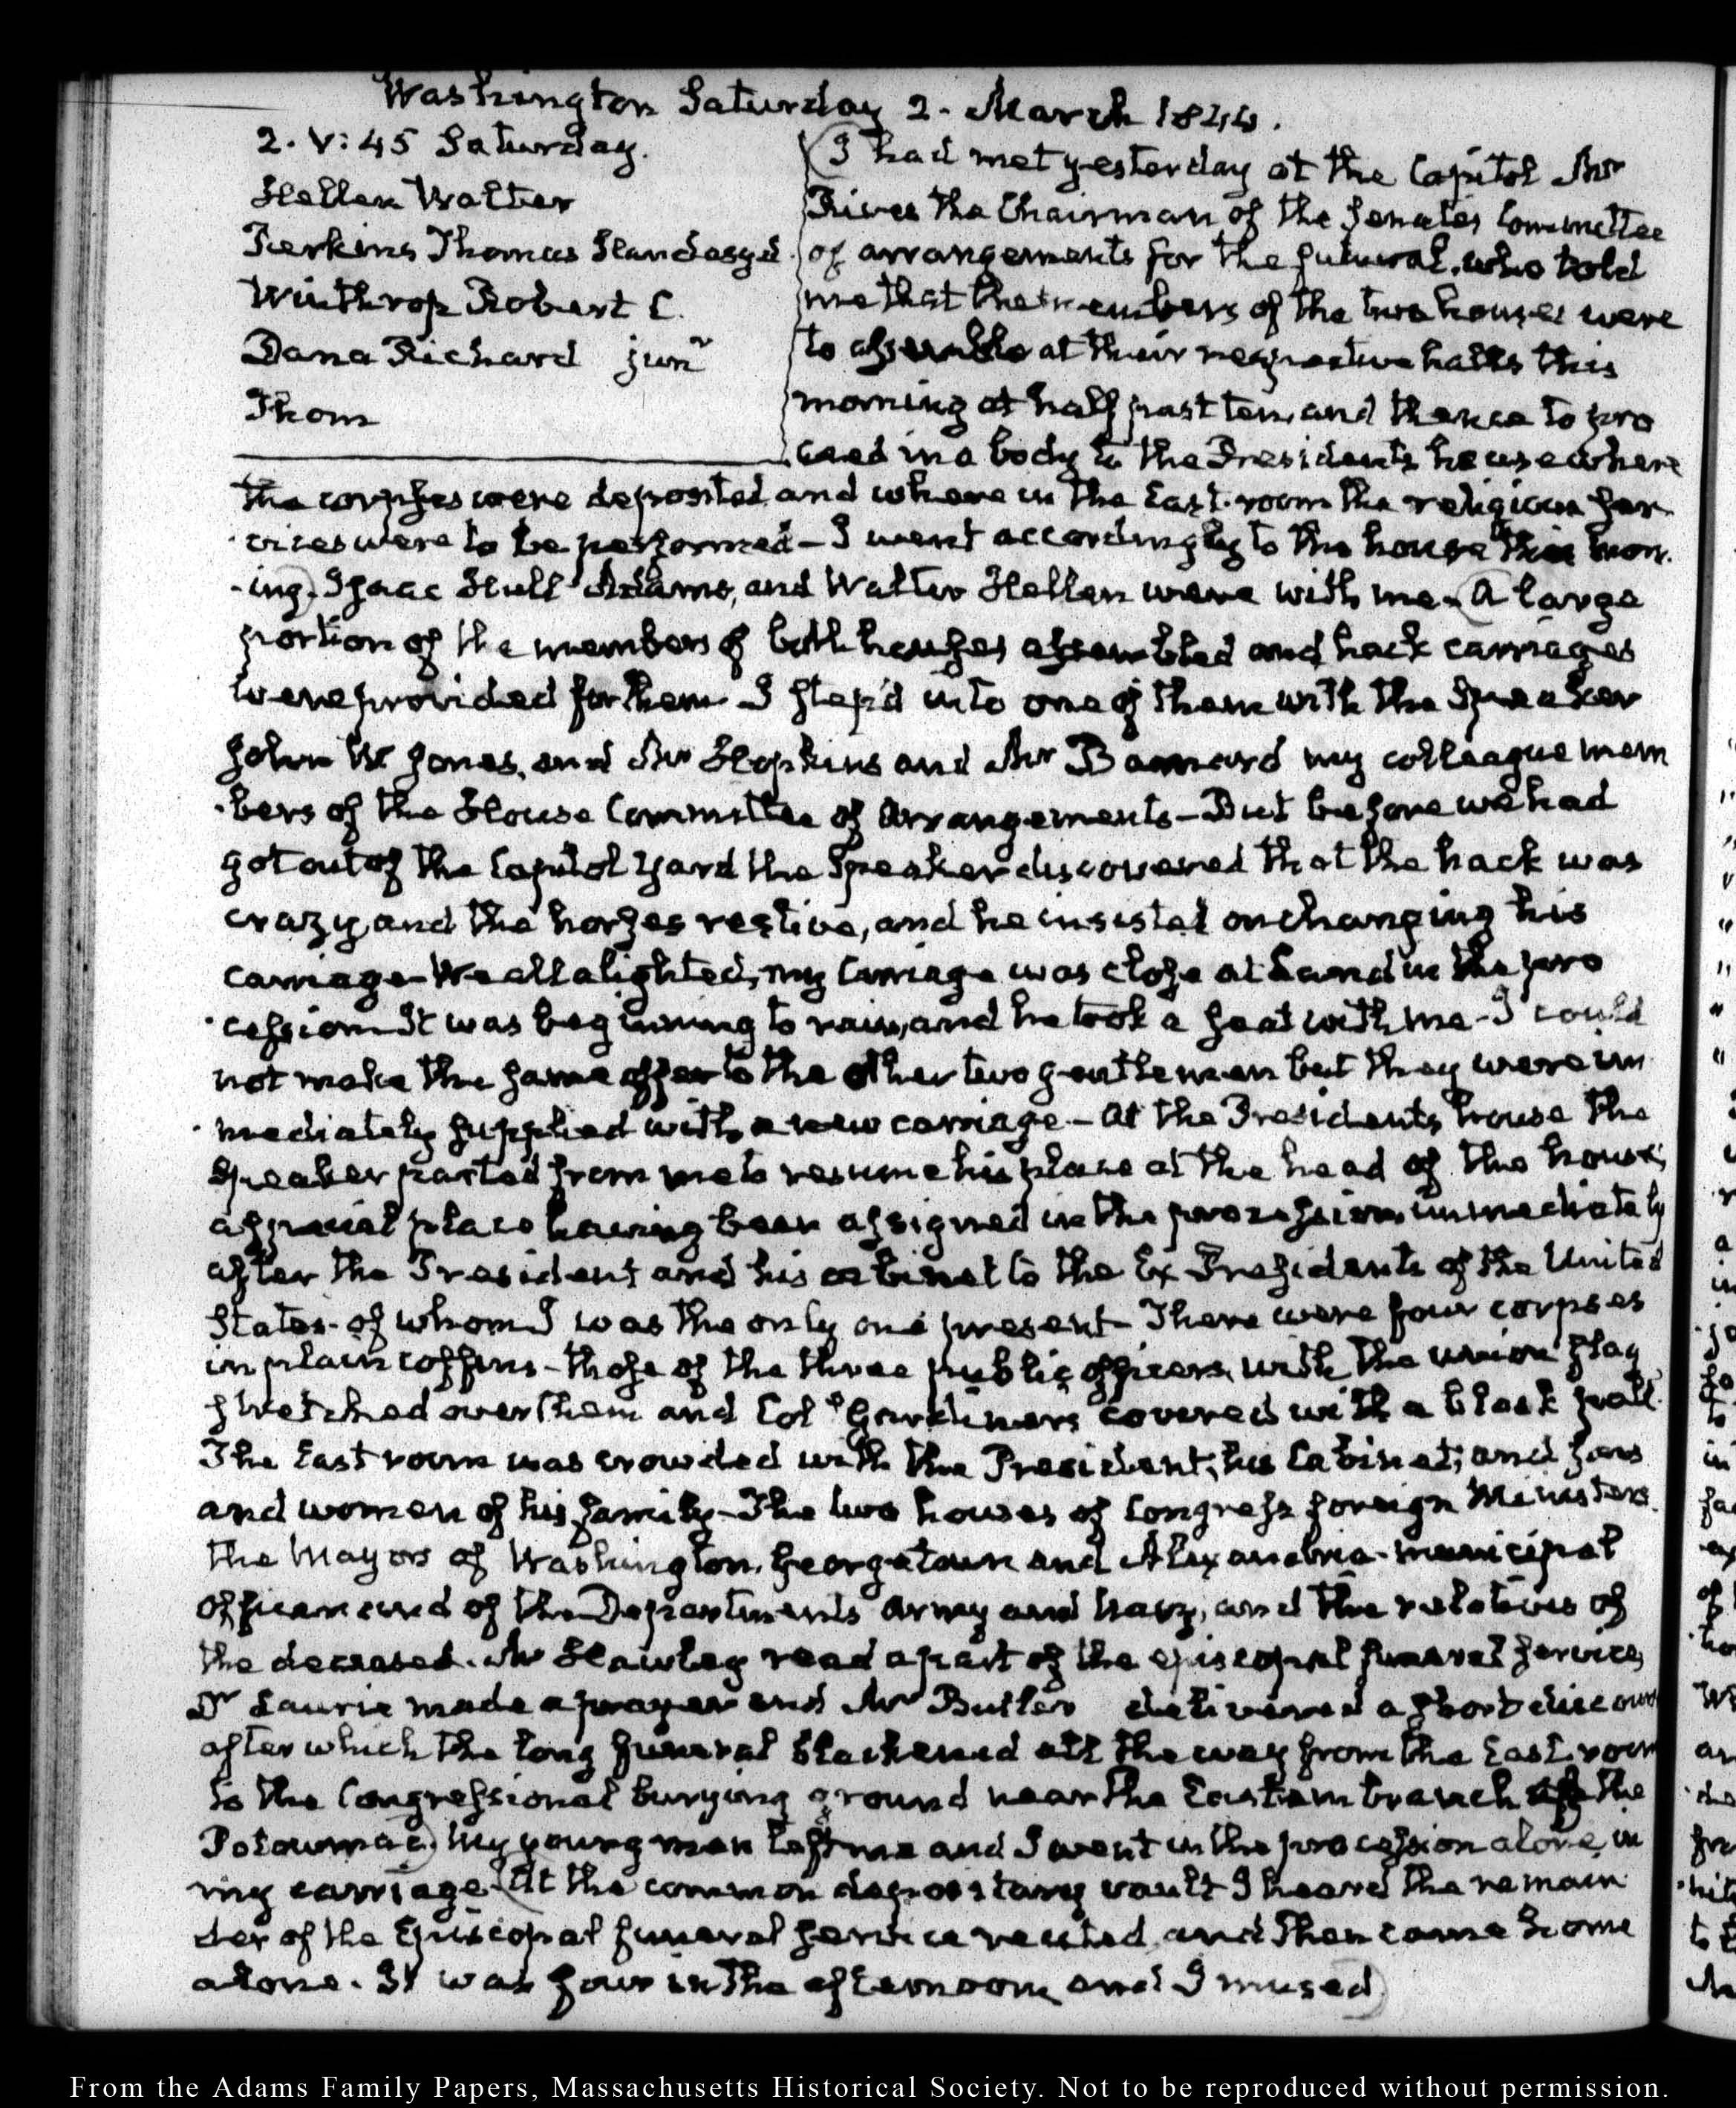 Washington Saturday 2. March 1844.
2. V:45 Saturday.
Hellen Walter
Perkins Thomas Handasyd
Winthrop Robert C.
Dana Richard junr
Thom
(I had met yesterday at the Capitol Mr
Rives the Chairman of the Senates Committee
of arrangements for the funeral, who told
me that the members of the two houses were
to assemble at their respective halls this
morning at half past ten, and thence to pro
ceed in a body to the Presidents house where
the corpses were deposited and where in the East-room the religious ser
vices were to be performed – I went accordingly to the house this morn.
-ing) Isaac Hull Adams, and Walter Hellen were with me – (A large
portion of the members of both houses assembled and hack carriages
were provided for them – I step'd into one of them with the Speaker
John W Jones, and Mr Hopkins and Mr Barnard my colleague mem
-bers of the House Committee of Arrangements – But before we had
got out of the Capitol Yard the Speaker discovered that the hack was
crazy, and the horses restive, and he insisted on changing his
carriage – We all alighted, my Carriage was close at hand in the pro
-cession – It was beginning to rain, and he took a seat with me – I could
not make the same offer to the other two gentlemen but they were im
mediately supplied with a new carriage – At the Presidents house the
Speaker parted from me to resume his place at the head of the house;
a special place having been assigned in the procession immediately
after the President and his cabinet to the Ex Presidents of the United
States – of whom I was the only one present – There were four corpses
in plain coffins – those of the three public officers, with the union flag
stretched over them and Col Gardiners covered with a black pall.
The East room was crowded with the President; his Cabinet; and
and women of his family – The two houses of Congress foreign Ministers.
The Mayors of Washington, Georgetown and Alexandria – municipal
officers and of the Departments Army and Navy, and the relatives of
the deceased. Mr Hawley read a part of the episcopal funeral service,
Dr Laurie made a prayer and Mr Butler delivered a short discour
after which the long funeral blackened all the way from the East room
to the Congressional burying ground near the Eastern branch of the
Potowmac) My young men left me and I went in the procession alone, in
my carriage (At the common depository vault I heard the remain
der of the Episcopal funeral service recited, and then came home
alone. It was four in the afternoon, and I mused)
From the Adams Family Papers, Massachusetts Historical Society. Not to be reproduced without permission.